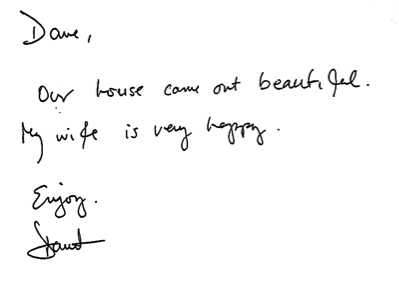 Dave,
Our house came out beautiful.
My wife is very happy.
Enjoy.